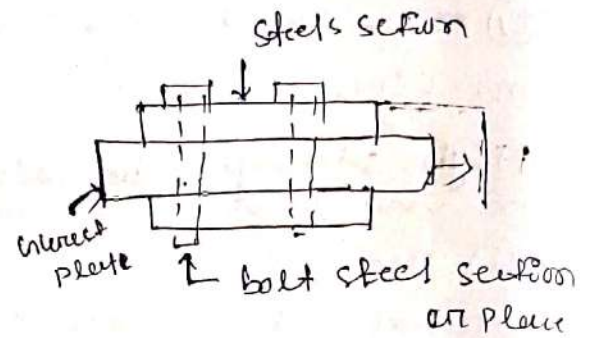 Steels section
plate
bolt steel section
at plane